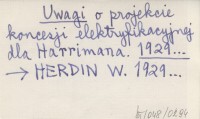 Uwagi o projekcie
koncesji elektryfikacyjnej
dla Harrimana. 1929...
→ HERDIN W. 1929...